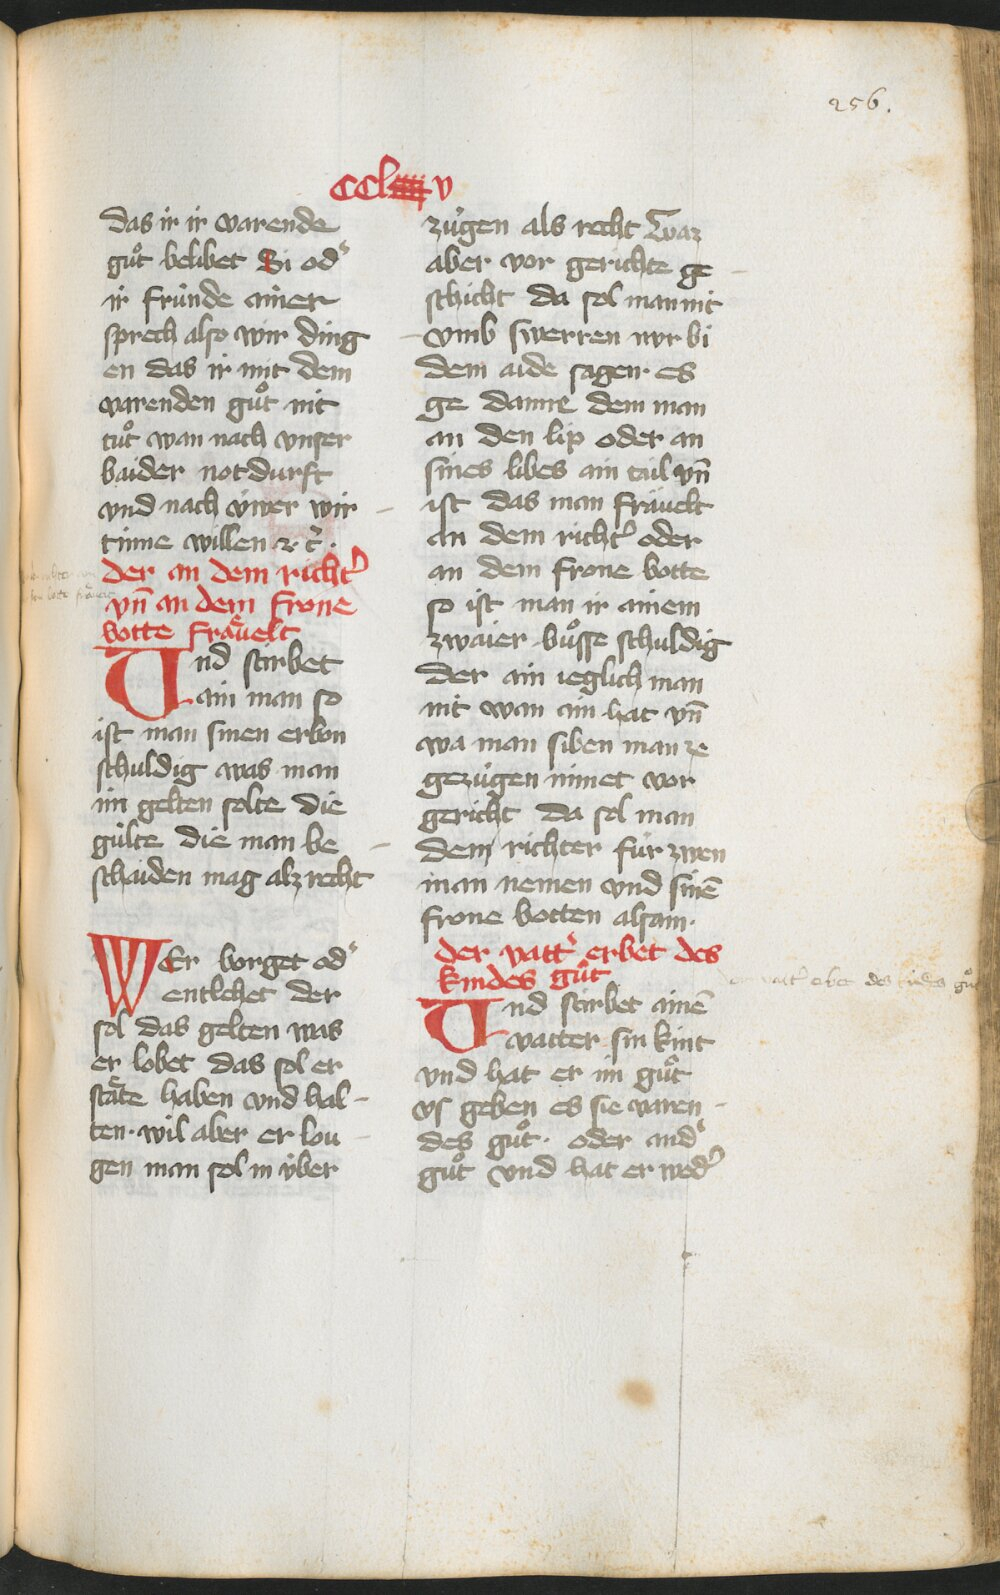 256.
CCl v
das ir ir varende
guͦt belibet Si odˀ
ir fründe ainer
sprech also wir ding
en das ir mit dem
varenden guͦt nit
tuͦt wan nach vnser
baider notdurft
vnd nach üwer wir
tinne willen ⁊ cͣ.
der an dem richtˀ
vn̄ an dem frone
botte fraͤuelt
Vnd stirbet
ain man so
ist man sinen erbon
schuldig was man
im gelten solte die
gülte die man be
schaiden mag alz recht
WEr borget odˀ
entlehet der
sol das gelten was
er lobet das sol er
staͤte haben vnd hal-
ten. wil aber er lou-
gen man sol in über
zügen als recht Waz
aber vor gerichte ge-
schicht da sol man nit
vmb swerren nur bi
dem aide sagen. es
ge danne dem man
an den lip oder an
sines libes ain tail vn̄
ist das man fräuelt
an dem richtˀ oder
an dem frone botte
so ist man ir ainem
zwaier buͦsse schuldig
der ain ieglich man
nit wan ain hat vn̄
wa man siben man ze
gezügen nimet vor
gericht da sol man
dem richter für zwen
man nemen vnd sinē
frone botten alsam.
der vattˀ erbet des
kindes guͦt
Vnd stirbet ainē
vatter sin kint
vnd hat er im guͦt
vs geben es sie varen-
des guͦt. oder andˀ
guͦt vnd hat er wedˀ
vatˀ erbe des kindes guͦt